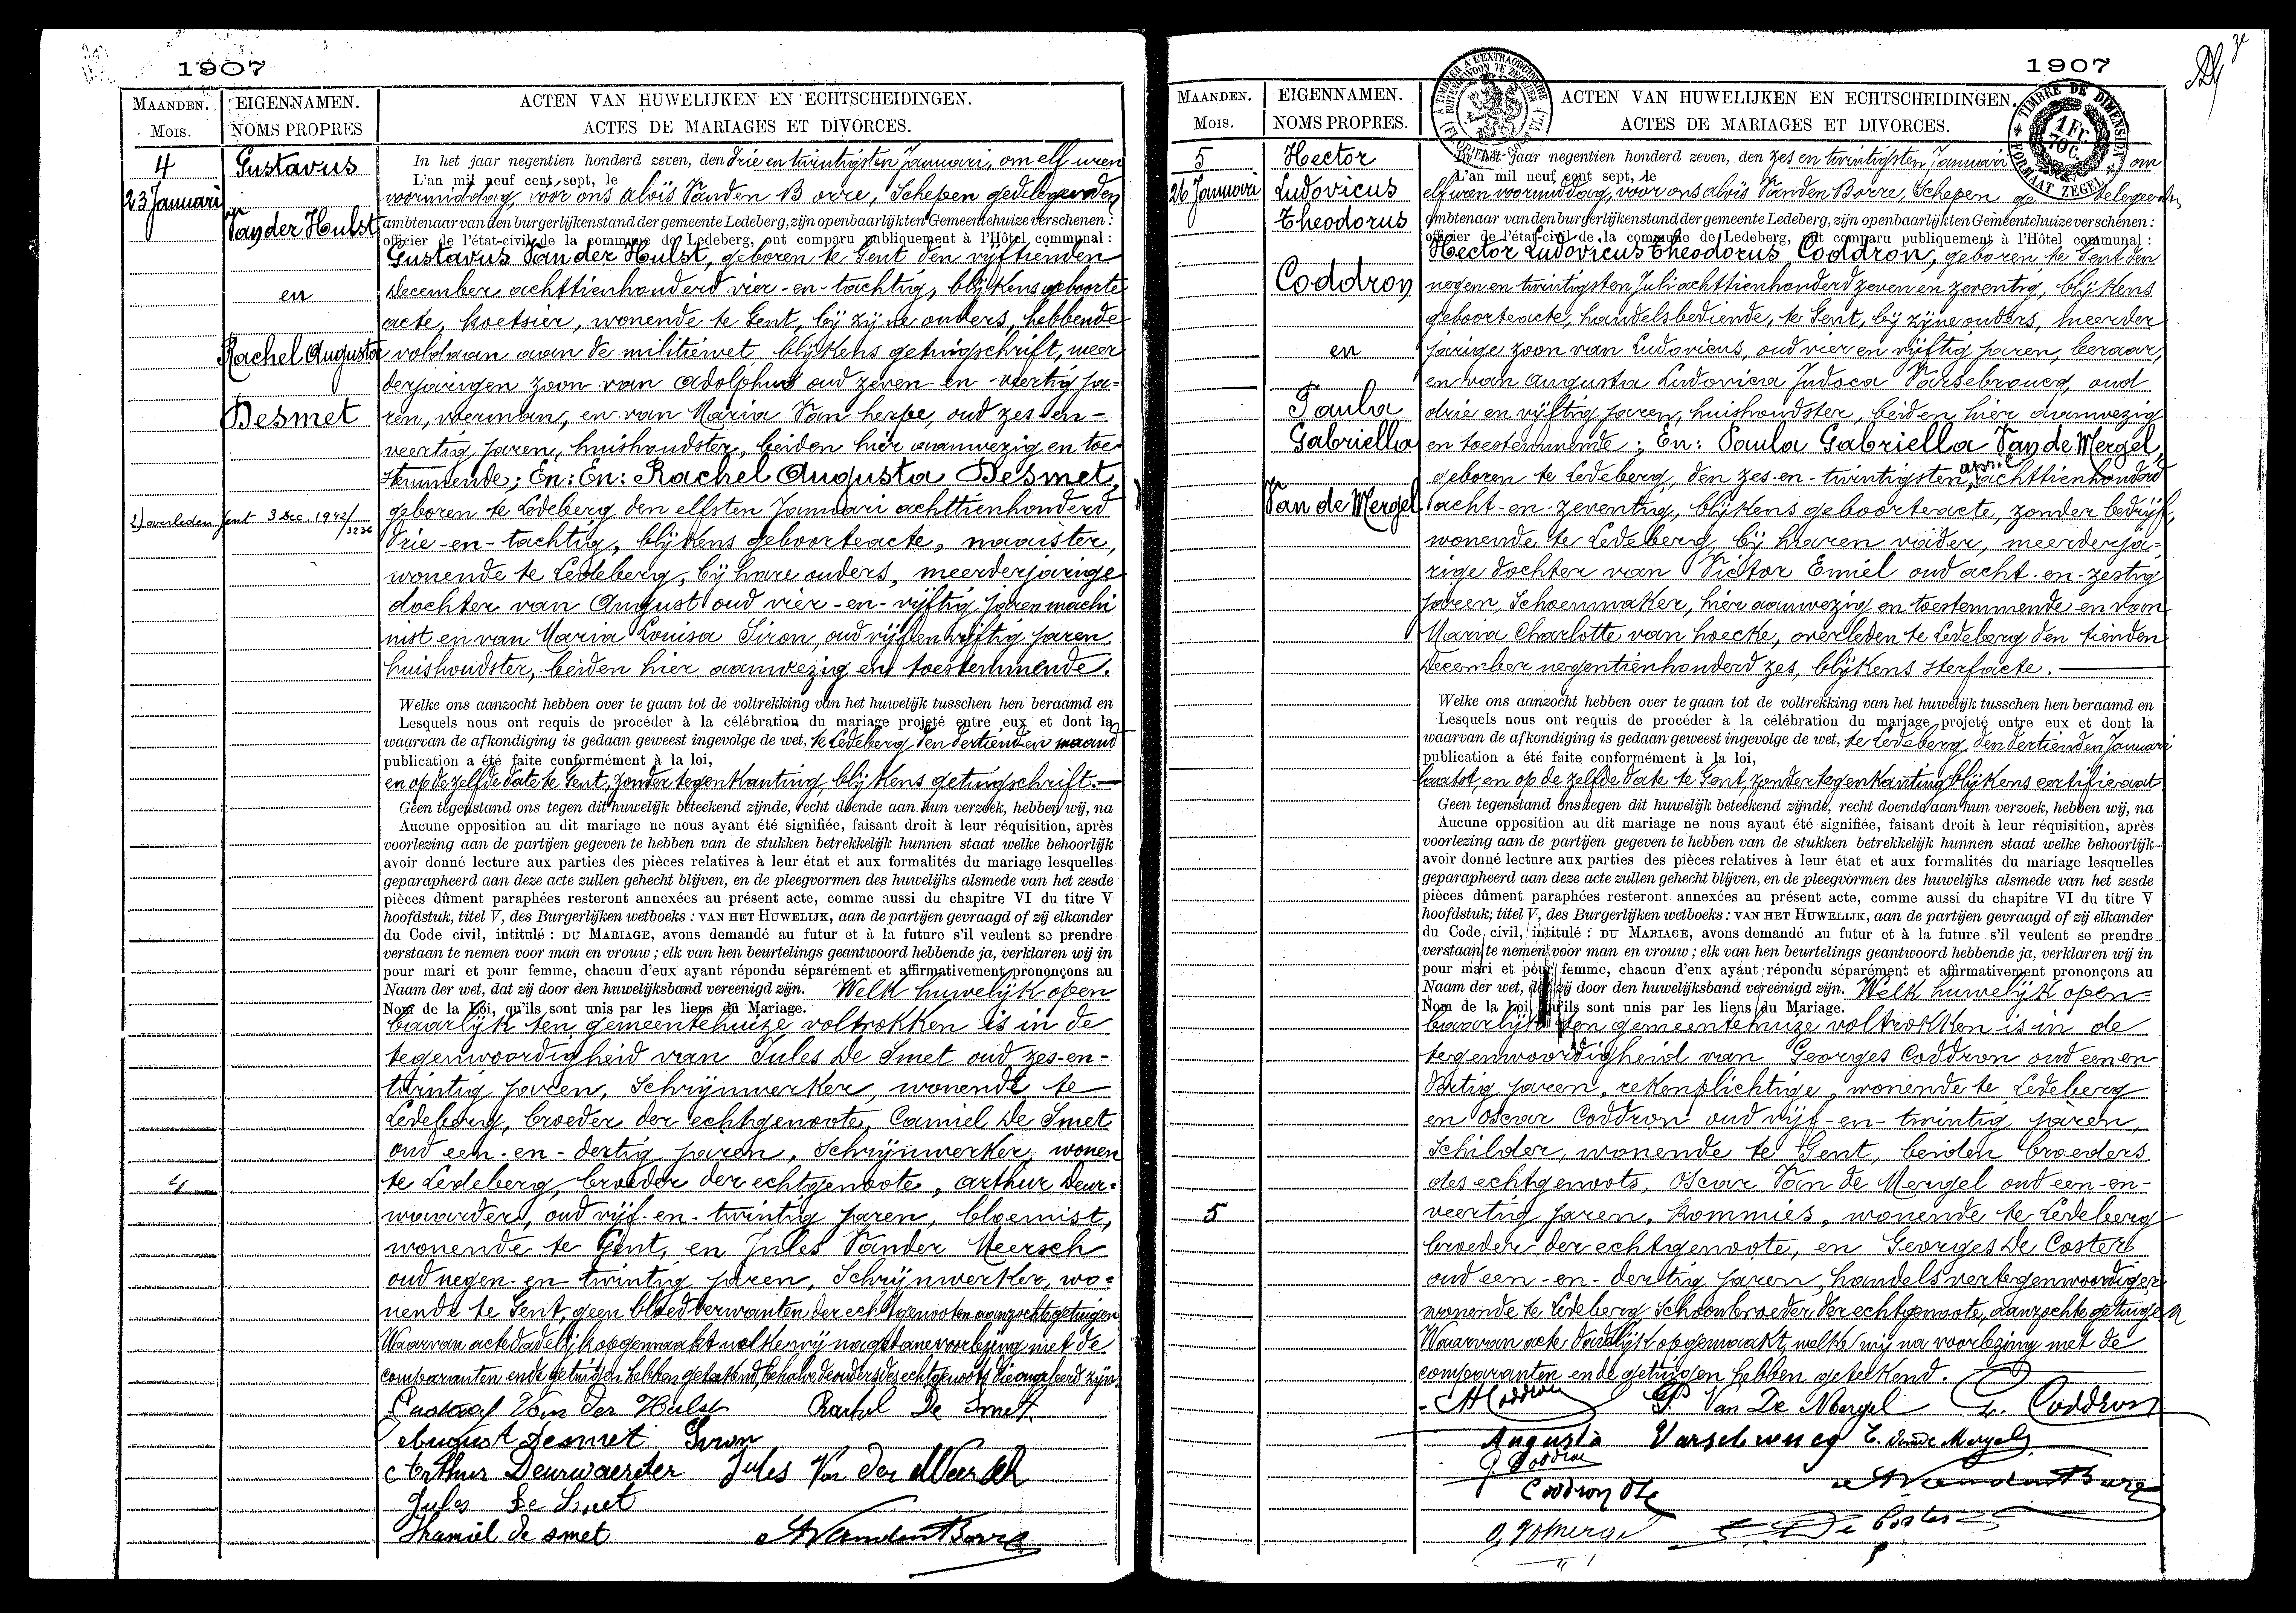 1907
MAANDEN.
Mois.
EIGENNAMEN.
NOMS PROPRES
ACTEN VAN HUWELIJKEN EN ECHTSCHEIDINGEN.
ACTES DE MARIAGES ET DIVORCES.
4
23 Januari
Gustavus
Van der Hulst
en
Rachel Augusta
Desmet
2) overleden Gent 3 Dec. 1942/
3236
4
In het jaar negentien honderd zeven, den drie en twintigsten Januari, om elf uren
L'an mil neuf cent sept, le
voormiddag, vóór ons Aloïs Vanden Borre, Schepen gedelegeerden
ambtenaar van den burgerlijken stand der gemeente Ledeberg, zijn openbaarlijk ten Gemeentehuize verschenen :
officier de l'état-civil de la commune de Ledeberg, ont comparu publiquement à l'Hôtel communal :
Gustavus Van der Hulst, geboren te Gent den vijftienden
December achttienhonderd vier-en-tachtig, blijkens geboorte
acte, koetsier, wonende te Gent, bij zijne ouders, hebbende
voldaan aan de militiewet blijkens getuigschrift, meer
derjarigen zoon van Adolphus oud zeven-en-veertig ja=
ren, voerman, en van Maria Van herpe, oud zes-en-
veertig jaren, huishoudster, beiden hier aanwezig en toe-
stemmende; En: En: Rachel Augusta Desmet,
geboren te Ledeberg den elfsten Januari achttienhonderd
drie-en-tachtig, blijkens geboorteacte, naaister,
wonende te Ledeberg, bij hare ouders, meerderjarige
dochter van August oud vier-en-vijftig jaren machi
nist en van Maria Louisa Siron, oud vijf en vijftig jaren
huishoudster, beiden hier aanwezig en toestemmende.
Welke ons aanzocht hebben over te gaan tot de voltrekking van het huwelijk tusschen hen beraamd en
Lesquels nous ont requis de procéder à la célébration du mariage projeté entre eux et dont la
waarvan de afkondiging is gedaan geweest ingevolge de wet, te Ledeberg den dertienden maand
publication a été faite conformément à la loi,
en op de zelfde date te Gent, zonder tegenkanting, blijkens getuigschrift.
Geen tegenstand ons tegen dit huwelijk beteekend zijnde, recht doende aan hun verzoek, hebben wij, na
Aucune opposition au dit mariage ne nous ayant été signifiée, faisant droit à leur réquisition, après
voorlezing aan de partijen gegeven te hebben van de stukken betrekkelijk hunnen staat welke behoorlijk
avoir donné lecture aux parties des pièces relatives à leur état et aux formalités du mariage lesquelles
geparapheerd aan deze acte zullen gehecht blijven, en de pleegvormen des huwelijks alsmede van het zesde
pièces dûment paraphées resteront annexées au présent acte, comme aussi du chapitre VI du titre V
hoofdstuk, titel V, des Burgerlijken wetboeks : VAN HET HUWELIJK, aan de partijen gevraagd of zij elkander
du Code civil, intitulé : DU MARIAGE, avons demandé au futur et à la future s'il veulent se prendre
verstaan te nemen voor man en vrouw ; elk van hen beurtelings geantwoord hebbende ja, verklaren wij in
pour mari et pour femme, chacun d'eux ayant répondu séparément et affirmativement prononçons au
Naam der wet, dat zij door den huwelijksband vereenigd zijn. Welk huwelijk open
Nom de la Loi, qu'ils sont unis par les liens du Mariage.
baarlijk ten gemeentehuize voltrokken is in de
tegenwoordigheid van Jules De Smet oud zes-en-
twintig jaren, Schrijnwerker, wonende te
Ledeberg, broeder der echtgenoote, Camiel De Smet
oud een-en-dertig jaren, Schrijnwerker, wonen
te Ledeberg, broeder der echtgenoote, Arthur Deur=
waarder, oud vijf-en-twintig jaren, bloemist,
wonende te Gent, en Jules Vander Meersch
oud negen-en-twintig jaren, Schrijnwerker, wo=
nende te Gent, geen bloedverwanten der echtgenooten aanzochte getuigen
Waarvan acte dadelijk opgemaakt welke wij na gedane voorlezing met de
comparanten en de getuigen hebben geteekend, behalve de ouders des echtgenoots die ongeleerd zijn.
Gustaaf Van Der Hulst Rachel De Smet.
August Desmet Siron
Arthur Deurwaerder Jules Van der Meersch
Jules De Smet
Kamiel de smet AVandenBorre
1907
MAANDEN.
Mois.
EIGENNAMEN.
NOMS PROPRES.
ACTEN VAN HUWELIJKEN EN ECHTSCHEIDINGEN.
ACTES DE MARIAGES ET DIVORCES.
TIMBRE DE DIMENSION
1 Fr.
70 C.
FORMAAT ZEGEL
5
26 Januari
Hector
Ludovicus
Theodorus
Coddron
en
Paula
Gabriella
Van de Mergel
5
In het jaar negentien honderd zeven, den zes en twintigsten Januari om
L'an mil neuf cent sept, le
elf uren voormiddag, voor ons Aloïs Vanden Borre, Schepen gedelegeerden
ambtenaar van den burgerlijken stand der gemeente Ledeberg, zijn openbaarlijk ten Gemeentehuize verschenen :
officier de l'état-civil de la commune de Ledeberg, ont comparu publiquement à l'Hôtel communal :
Hector Ludovicus Theodorus Coddron, geboren te Gent den
negen en twintigsten Juli achttienhonderd zeven en zeventig, blijkens
geboorteacte, handelsbediende, te Gent, bij zijne ouders, meerder
jarige zoon van Ludovicus, oud vier en vijftig jaren, leraar,
en van Augusta Ludovica Judoca Varsebroucq, oud
drie en vijftig jaren, huishoudster, beiden hier aanwezig
en toestemmende; En: Paula Gabriella Van de Mergel,
geboren te Ledeberg, den zes-en-twintigsten april achttienhonderd
acht-en-zeventig, blijkens geboorteacte, zonder bedrijf,
wonende te Ledeberg bij haren vader, meerderja=
rige dochter van Victor Emiel oud acht-en-zestig
jaren, Schoenmaker, hier aanwezig en toestemmende en van
Maria Charlotte van hoecke, overleden te Ledeberg den tienden
December negentienhonderd zes, blijkens sterfacte.
Welke ons aanzocht hebben over te gaan tot de voltrekking van het huwelijk tusschen hen beraamd en
Lesquels nous ont requis de procéder à la célébration du mariage projeté entre eux et dont la
waarvan de afkondiging is gedaan geweest ingevolge de wet, te Ledeberg, den dertienden Januari
publication a été faite conformément à la loi,
laatst, en op de zelfde date te Gent, zonder tegenkanting blijkens certificaat
Geen tegenstand ons tegen dit huwelijk beteekend zijnde, recht doende aan hun verzoek, hebben wij, na
Aucune opposition au dit mariage ne nous ayant été signifiée, faisant droit à leur réquisition, après
voorlezing aan de partijen gegeven te hebben van de stukken betrekkelijk hunnen staat welke behoorlijk
avoir donné lecture aux parties des pièces relatives à leur état et aux formalités du mariage lesquelles
geparapheerd aan deze acte zullen gehecht blijven, en de pleegvormen des huwelijks alsmede van het zesde
pièces dûment paraphées resteront annexées au présent acte, comme aussi du chapitre VI du titre V
hoofdstuk, titel V, des Burgerlijken wetboeks : VAN HET HUWELIJK, aan de partijen gevraagd of zij elkander
du Code civil, intitulé : DU MARIAGE, avons demandé au futur et à la future s'il veulent se prendre
verstaan te nemen voor man en vrouw ; elk van hen beurtelings geantwoord hebbende ja, verklaren wij in
pour mari et pour femme, chacun d'eux ayant répondu séparément et affirmativement prononçons au
Naam der wet, dat zij door den huwelijksband vereenigd zijn. Welk huwelijk open=
Nom de la Loi, qu'ils sont unis par les liens du Mariage.
baarlijk ten gemeentehuize voltrokken is in de
tegenwoordigheid van Georges Coddron oud een en
dertig jaren, rekenplichtige, wonende te Ledeberg
en Oscar Coddron oud vijf-en-twintig jaren,
Schilder, wonende te Gent, beiden broeders
des echtgenoots, Oscar Van de Mergel oud een-en-
veertig jaren, kommies, wonende te Ledeberg
broeder der echtgenoote, en Georges De Coster
oud een-en-dertig jaren, handelsvertegenwoordiger
wonende te Ledeberg, Schoonbroeder der echtgenoote, aanzochte getuigen
Waarvan acte dadelijk opgemaakt, welke wij na voorlezing met de
comparanten en de getuigen hebben geteekend.
HCoddron P. Van De Mergel L. Coddron
Augusta Varsebroucq E. Van de Mergel
G. Coddron
Coddron Osc AVandenBorre
O. VdMergel G. De Coster